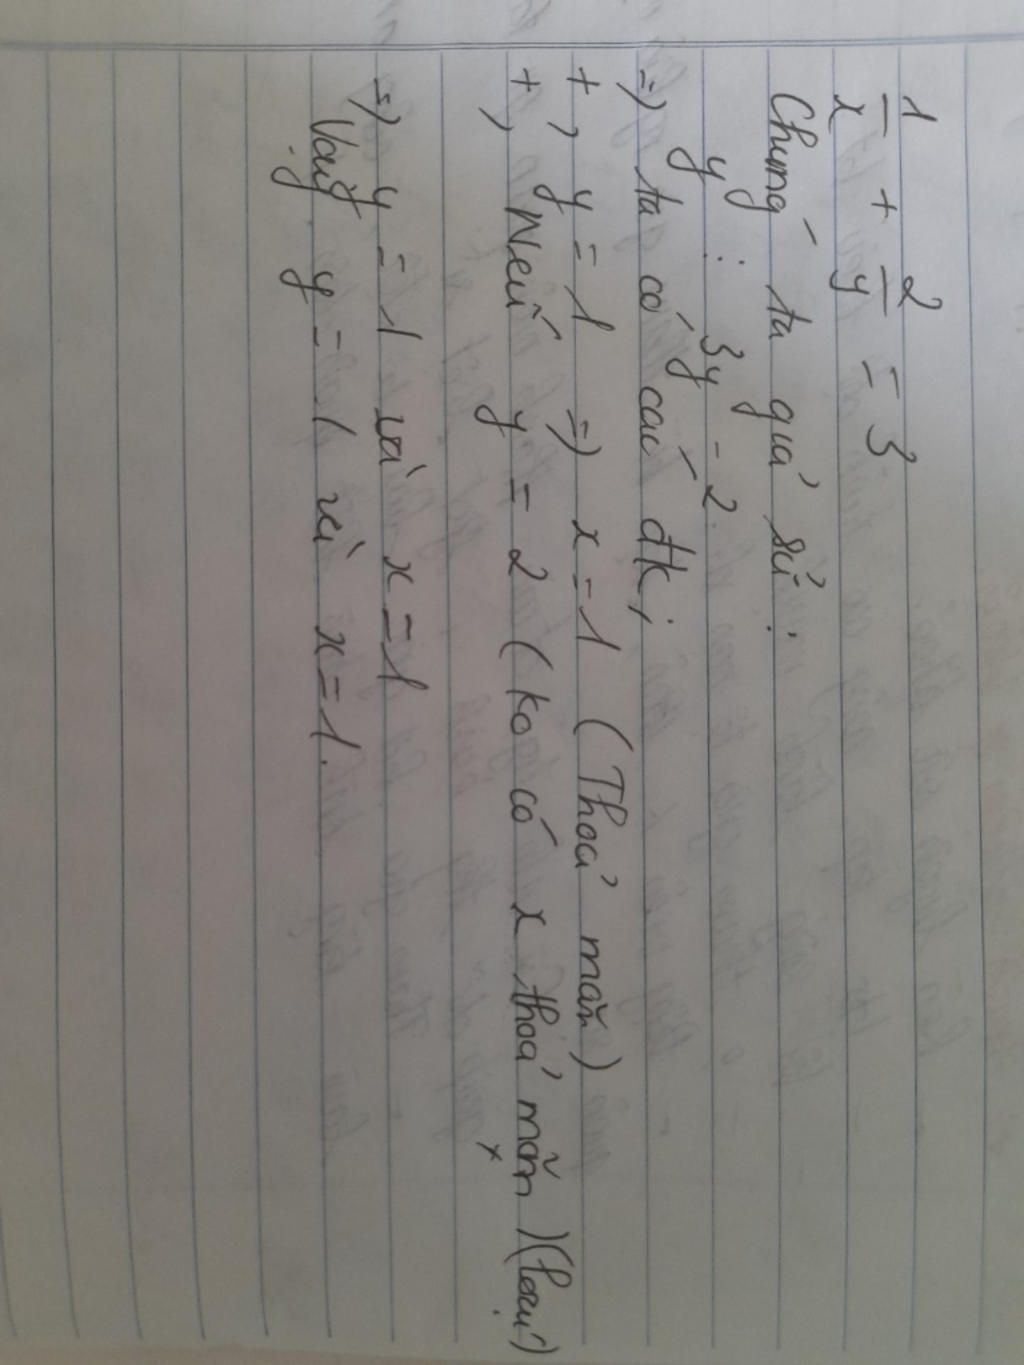 1/x + 2/y = 3
Chúng ta giả sử:
y ⋮ 3y - 2.
=) ta có các đk;
+, y = 1 =) x = 1 (Thoả mãn)
+, Nếu y = 2 (ko có x thoả mãn)(loại)
=) y = 1 và x = 1
Vậy y = 1 và x = 1.